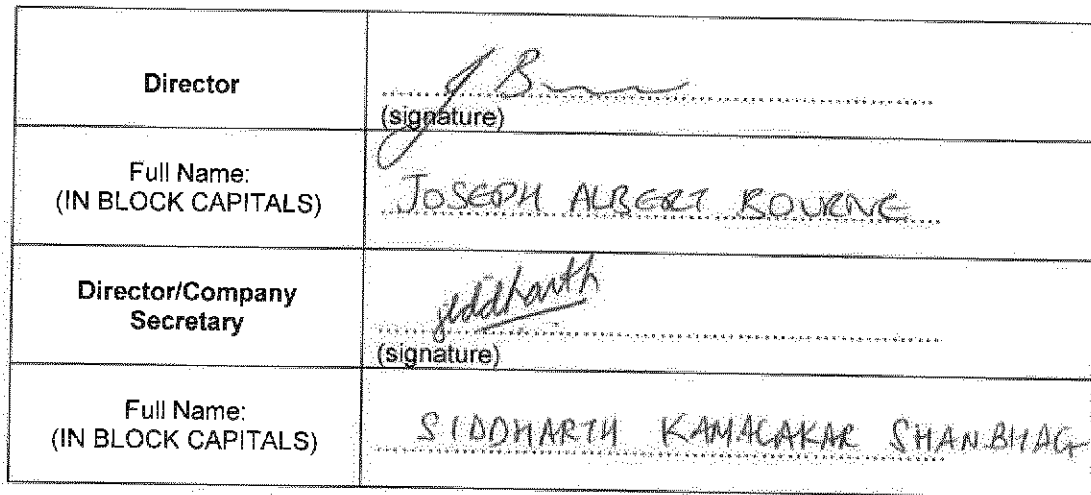 Director
J B
(signature)
Full Name:
(IN BLOCK CAPITALS)
JOSEPH ALBERT BOURNE
Director/Company
Secretary
Siddharth
(signature)
Full Name:
(IN BLOCK CAPITALS)
SIDDHARTH KAMALAKAR SHANBHAG